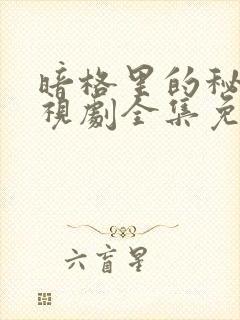 暗格里的秘
視劇全集免
六盲星